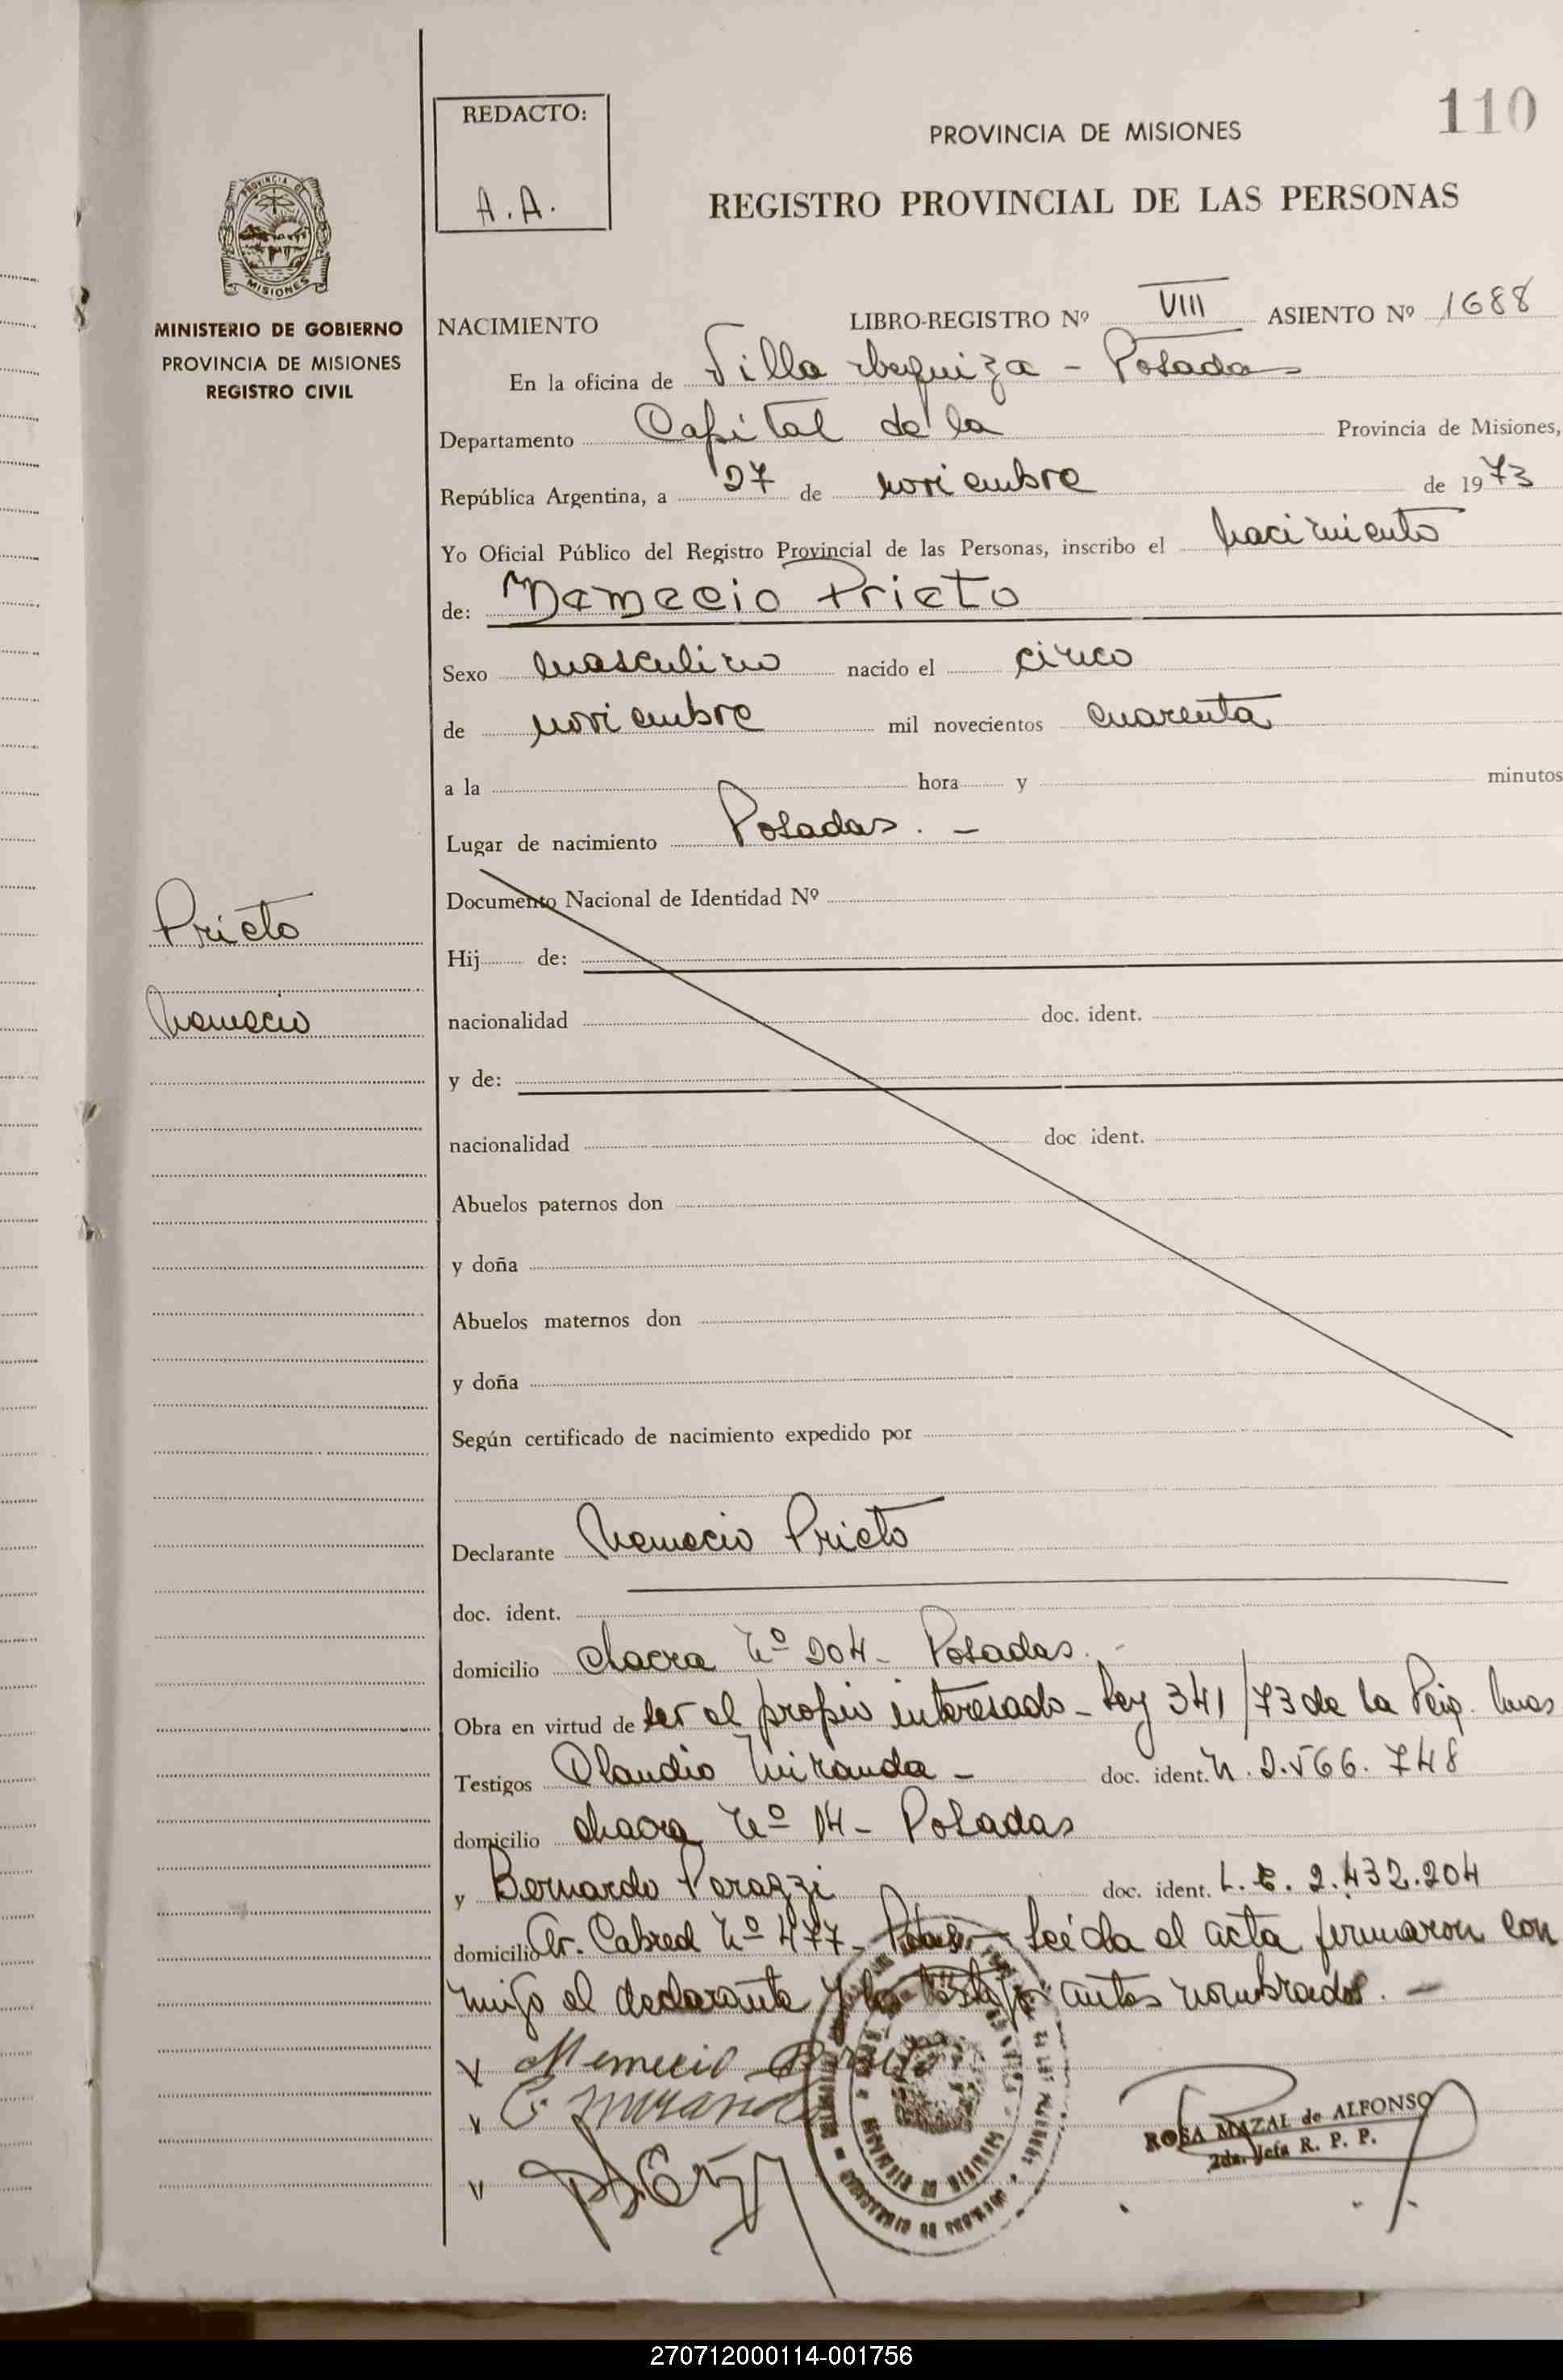 110
REDACTO:
A.A.
PROVINCIA DE MISIONES
REGISTRO PROVINCIAL DE LAS PERSONAS
MISIONES
MINISTERIO DE GOBIERNO
PROVINCIA DE MISIONES
REGISTRO CIVIL
NACIMIENTO LIBRO-REGISTRO Nº VIII ASIENTO Nº 1688
En la oficina de Villa Urquiza - Posadas
Departamento Capital de la Provincia de Misiones,
República Argentina, a 27 de noviembre de 1973
Yo Oficial Público del Registro Provincial de las Personas, inscribo el nacimiento
de: Nemecio Prieto
Sexo masculino nacido el cinco
de noviembre mil novecientos cuarenta
a la hora y minutos
Lugar de nacimiento Posadas. -
Documento Nacional de Identidad Nº
Hij de:
nacionalidad doc. ident.
y de:
nacionalidad doc ident.
Abuelos paternos don
y doña
Abuelos maternos don
y doña
Según certificado de nacimiento expedido por
Prieto
Nemecio
Declarante Nemecio Prieto
doc. ident.
domicilio chacra Nº 204 - Posadas. -
Obra en virtud de ser el propio interesado - Ley 341/73 de la
Testigos Claudio Miranda - doc. ident. 2.566.748
domicilio chacra Nº 14 - Posadas
y Bernardo Perazzi doc. ident. L.E. 2.432.204
domicilio Dr. Cabred Nº 477 - Leída el acta firmaron con
migo el declarante y los testigos antes nombrados. -
Nemecio Prieto
C. Miranda
ROSA MAZAL de ALFONSO
2da. Jefa R. P. P.
270712000114-001756